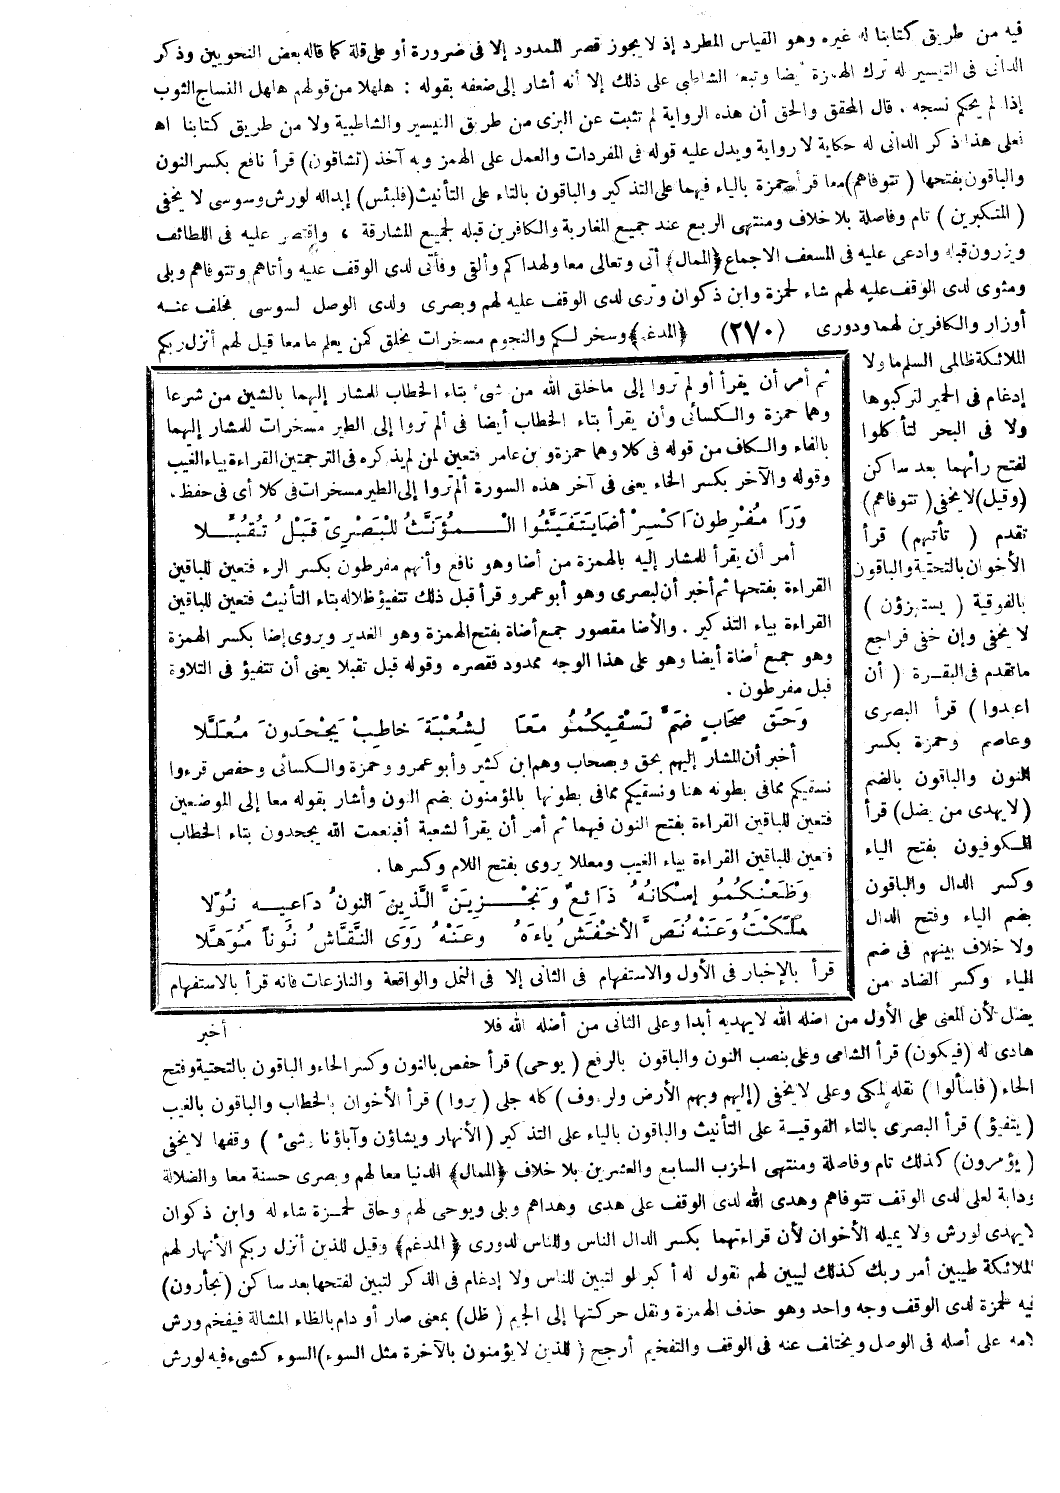 فيه من طريق كتابنا له غيره وهو القياس المطرد إذ لا يجوز قصر الممدود إلا فى ضرورة أو على قلة كما قاله بعض النحويين وذكر
الدانى فى التيسير له ترك الهمزة أيضا وتبعه الشاطبى على ذلك إلا أنه أشار إلى ضعفه بقوله : هلهلا من قولهم هلهل النساج الثوب
إذا لم يحكم نسجه . قال المحقق والحق أن هذه الرواية لم تثبت عن البزى من طريق التيسير والشاطبية ولا من طريق كتابنا اه
فعلى هذا ذكر الدانى له حكاية لا رواية ويدل عليه قوله فى المفردات والعمل على الهمز وبه آخذ (تشاقون) قرأ نافع بكسر النون
والباقون بفتحها (تتوفاهم) معا قرأ حمزة بالياء فيهما على التذكير والباقون بالتاء على التأنيث (فلبئس) إبداله لورش وسوسى لا يخفى
(المتكبرين) تام وفاصلة بلا خلاف ومنتهى الربع عند جميع المغاربة والكافرين قبله لجميع المشارقة ، واقتصر عليه فى اللطائف
ويزرون قبله وادعى عليه فى المسعف الاجماع ﴿الممال﴾ أتى وتعالى معا ولهداكم وألقى وفأتى لدى الوقف عليه وأتاهم وتتوفاهم وبلى
ومثوى لدى الوقف عليه لهم شاء لحمزة وابن ذكوان وترى لدى الوقف عليه لهم وبصرى ولدى الوصل لسوسى بخلف عنه
أوزار والكافرين لهما ودورى (٢٧٠) ﴿المدغم﴾ وسخر لكم والنجوم مسخرات يخلق كمن يعلم ما معا قيل لهم أنزل ربكم
الملائكة ظالمى السلم ما ولا
إدغام فى الحمير لتركبوها
ولا فى البحر لتأكلوا
لفتح رائهما بعد ساكن
(وقيل) لا يخفى (تتوفاهم)
تقدم (تأتيهم) قرأ
الأخوان بالتحتية والباقون
بالفوقية (يستهزؤن)
لا يخفى وإن خفى فراجع
ما تقدم فى البقرة (أن
اعبدوا) قرأ البصرى
وعاصم وحمزة بكسر
النون والباقون بالضم
(لا يهدى من يضل) قرأ
الكوفيون بفتح الياء
وكسر الدال والباقون
بضم الياء وفتح الدال
ولا خلاف بينهم فى ضم
الياء وكسر الضاد من
ثم أمر أن يقرأ أو لم تروا إلى ما خلق الله من شئ بتاء الخطاب للمشار إليهما بالشين من شرعا
وهما حمزة والكسائى وأن يقرأ بتاء الخطاب أيضا فى ألم تروا إلى الطير مسخرات للمشار إليهما
بالفاء والكاف من قوله فى كلا وهما حمزة وبن عامر فتعين لمن لم يذكره فى الترجمتين القراءة بياء الغيب
وقوله والآخر بكسر الخاء يعنى فى آخر هذه السورة ألم تروا إلى الطير مسخرات فى كلا أى فى حفظ .
وَرَا مُفْرِطُونَ اكْسِرْ أَضَا يَتَفَيَّئُوا الْـمُؤَنَّثُ لِلْبَصْرِىِّ قَبْلُ تُقُبِّلا
أمر أن يقرأ للمشار إليه بالهمزة من أضا وهو نافع وأنهم مفرطون بكسر الرء فتعين للباقين
القراءة بفتحها ثم أخبر أن لبصرى وهو أبو عمرو قرأ قبل ذلك تتفيؤ ظلاله بتاء التأنيث فتعين للباقين
القراءة بياء التذكير . والأضا مقصور جمع أضاة بفتح الهمزة وهو الغدير ويروى إضا بكسر الهمزة
وهو جمع أضاة أيضا وهو على هذا الوجه ممدود فقصره وقوله قبل تقبلا يعنى أن تتفيؤ فى التلاوة
قبل مفرطون .
وَحَقَّ صِحَابٍ ضَمَّ نَسْقِيكُمُو مَعًا لِشُعْبَةَ خَاطِبْ يَجْحَدُونَ مُعَلَّلَا
أخبر أن المشار إليهم بحق وبصحاب وهم ابن كثير وأبو عمرو وحمزة والكسائى وحفص قرءوا
نسقيكم مما فى بطونه هنا ونسقيكم مما فى بطونها بالمؤمنون بضم النون وأشار بقوله معا إلى الموضعين
فتعين للباقين القراءة بفتح النون فيهما ثم أمر أن يقرأ لشعبة أفبنعمت الله يجحدون بتاء الخطاب
فتعين للباقين القراءة بياء الغيب ومعللا يروى بفتح اللام وكسرها .
وَظَعْنِكُمُو إِسْكَانُهُ ذَائِعٌ وَنَجْـزِيَنَّ الَّذِينَ النونُ دَاعِيهِ نُوِّلَا
مَلَكْتُ وَعَنْهُ نَصَّ الأَخْفَشُ يَاءَهُ وَعَنْهُ رَوَى النَّقَّاشُ نُوناً مُوَهَّلَا
قرأ بالإخبار فى الأول والاستفهام فى الثانى إلا فى النمل والواقعة والنازعات فانه قرأ بالاستفهام
يضل لأن المعنى على الأول من اضله الله لا يهديه أبدا وعلى الثانى من أضله الله فلا أخبر
هادى له (فيكون) قرأ الشامى وعلى بنصب النون والباقون بالرفع (يوحى) قرأ حفص بالنون وكسر الحاء والباقون بالتحتية وفتح
الحاء (فاسألوا) نقله لمكى وعلى لا يخفى (إليهم وبهم الأرض ولرءوف) كله جلى (تروا) قرأ الأخوان بالخطاب والباقون بالغيب
(يتفيؤ) قرأ البصرى بالتاء الفوقية على التأنيث والباقون بالياء على التذكير (الأنهار ويشاؤن وآباؤنا وشئ) وقفها لا يخفى
(يؤمرون) كذلك تام وفاصلة ومنتهى الحزب السابع والعشرين بلا خلاف ﴿الممال﴾ الدنيا معا لهم وبصرى حسنة معا والضلالة
ودابة لعلى لدى الوقف تتوفاهم وهدى الله لدى الوقف على هدى وهداهم وبلى ويوحى لهم وحاق لحمزة شاء له وابن ذكوان
لا يهدى لورش ولا يميله الأخوان لأن قراءتهما بكسر الدال الناس وللناس لدورى ﴿المدغم﴾ وقيل للذين أنزل ربكم الأنهار لهم
الملائكة طيبين أمر ربك كذلك ليبين لهم نقول له أكبر لو لتبين للناس ولا إدغام فى الذكر لتبين لفتحها بعد ساكن (تجأرون)
فيه لحمزة لدى الوقف وجه واحد وهو حذف الهمزة ونقل حركتها إلى الجيم (ظل) بمعنى صار أو دام بالظاء المشالة فيفخم ورش
لامه على أصله فى الوصل ويختلف عنه فى الوقف والتفخيم أرجح (للذين لا يؤمنون بالآخرة مثل السوء) السوء كشىء فيه لورش